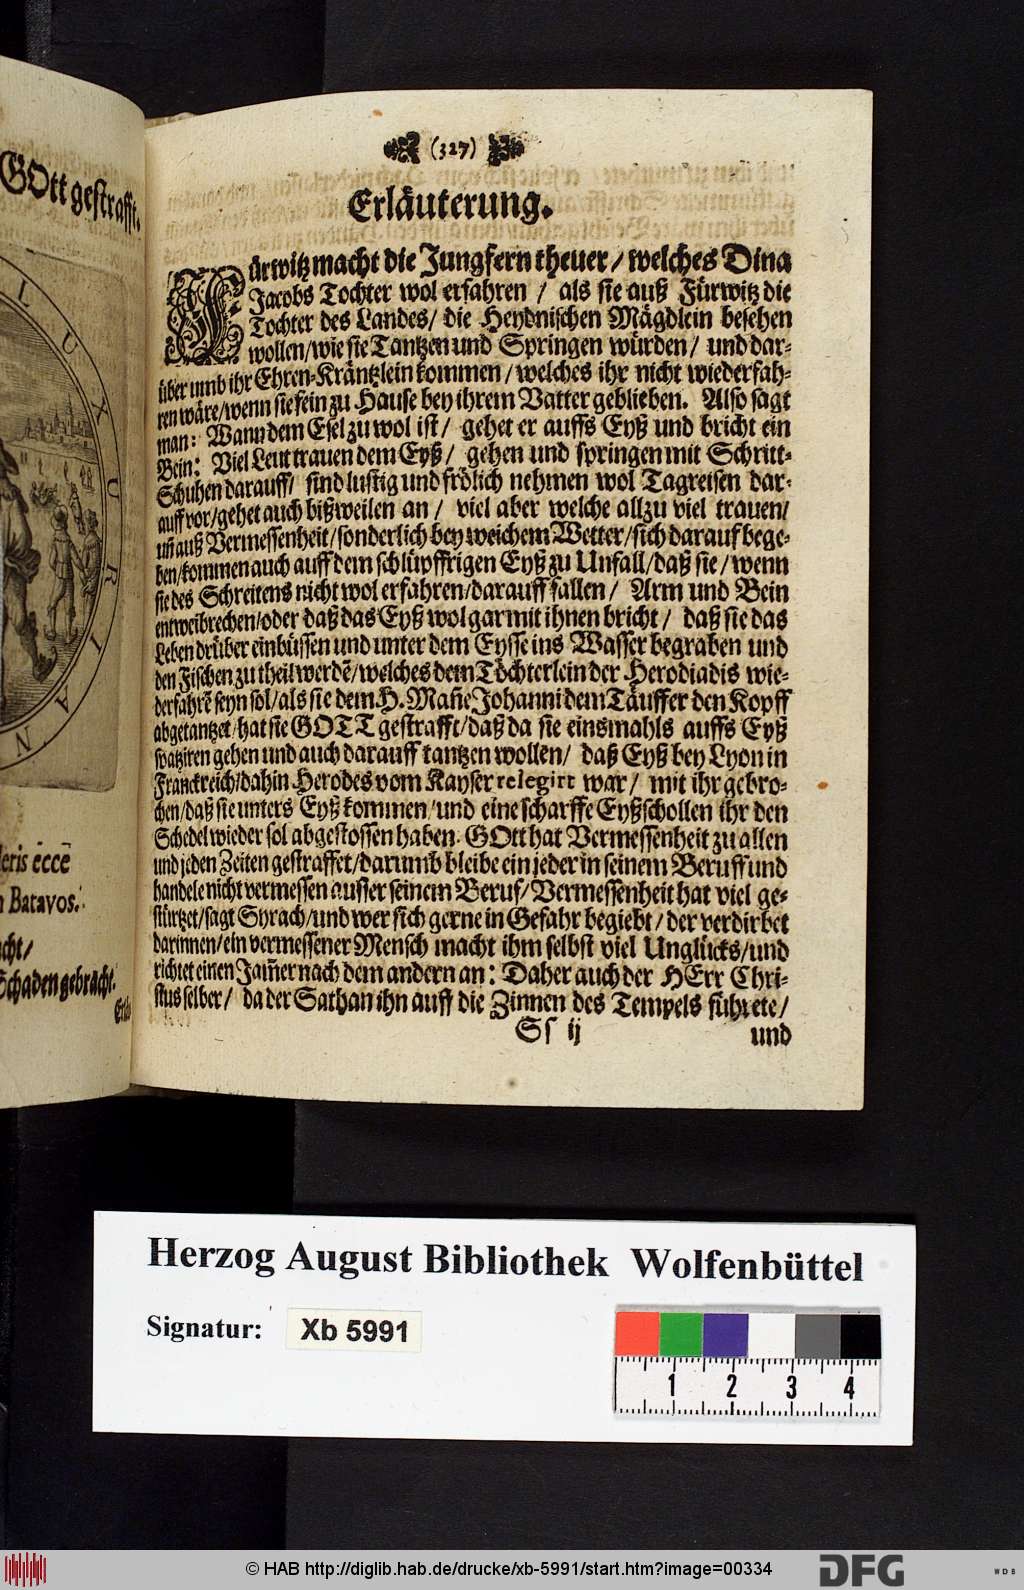 GOtt gestrafft.
LUXURIA
N
deris eccē
n Batavos.
cht/
Schaden gebracht.
Erläu
(327)
Erläuterung.
Fürwitz macht die Jungfern theuer / welches Dina
Jacobs Tochter wol erfahren / als sie auß Fürwitz die
Tochter des Landes/ die Heydnischen Mägdlein besehen
wollen/ wie sie Tantzen und Springen würden / und dar-
über umb ihr Ehren-Kräntzlein kommen / welches ihr nicht wiederfah-
ren wäre/ wenn sie fein zu Hause bey ihrem Vatter geblieben. Also sagt
man: Wann dem Esel zu wol ist / gehet er auffs Eyß und bricht ein
Bein: Viel Leut trauen dem Eyß / gehen und springen mit Schritt-
Schuhen darauff/ sind lustig und frölich nehmen wol Tagreisen dar-
auff vor/ gehet auch bißweilen an / viel aber welche allzu viel trauen/
uñ auß Vermessenheit/ sonderlich bey weichem Wetter/ sich darauf bege-
ben/ kommen auch auff dem schlüpffrigen Eyß zu Unfall/ daß sie / wenn
sie des Schreitens nicht wol erfahren/ darauff fallen / Arm und Bein
entweibrechen/ oder daß das Eyß wol gar mit ihnen bricht / daß sie das
Leben drüber einbüssen und unter dem Eysse ins Wasser begraben und
den Fischen zu theil werdē/ welches dem Töchterlein der Herodiadis wie-
derfahrē seyn sol/ als sie dem H. Mañe Johanni dem Täuffer den Kopff
abgetantzet/ hat sie GOTT gestrafft/ daß da sie einsmahls auffs Eyß
spatziren gehen und auch darauff tantzen wollen / daß Eyß bey Lyon in
Franckreich/ dahin Herodes vom Kayser relegirt war / mit ihr gebro-
chen/ daß sie unters Eyß kommen / und eine scharffe Eyßschollen ihr den
Schedel wieder sol abgestossen haben. GOtt hat Vermessenheit zu allen
und jeden Zeiten gestraffet/ darumb bleibe ein jeder in seinem Beruff und
handele nicht vermessen ausser seinem Beruf/ Vermessenheit hat viel ge-
stürtzet/ sagt Syrach/ und wer sich gerne in Gefahr begiebt / der verdirbet
darinnen/ ein vermessener Mensch macht ihm selbst viel Unglücks/ und
richtet einen Jam̃er nach dem andern an: Daher auch der HErr Chri-
stus selber / da der Sathan ihn auff die Zinnen des Tempels führete /
Ss ij
und
Herzog August Bibliothek Wolfenbüttel
Signatur: Xb 5991
1 2 3 4
© HAB http://diglib.hab.de/drucke/xb-5991/start.htm?image=00334
DFG
WDB